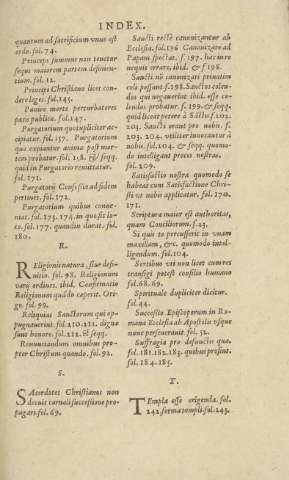 INDEX.
quantum ad sacrificium vnus est
ordo. fol. 74.
Princeps summus non tenetur
sequi maiorem partem definien-
tium. fol. 12.
Principi Christiano licet con-
dere leges. fol. 145.
Punire morte perturbatores
pacis publicæ. fol. 147.
Purgatorium quotupliciter ac-
cipiatur. fol. 157. Purgatorium
quo expiantur animæ post mor-
tem probatur. fol. 158. & seqq.
quid in Purgatorio remittatur.
fol. 171.
Purgatorij Confessio ad fidem
pertinet. fol. 172.
Purgatorium quibus conue-
niat. fol. 173. 174. in quo sit lo-
co. fol. 177. quamdiu durat. fol.
180.
R.
Religionis natura, siue defi-
nitio. fol. 98. Religionum
varij ordines. ibid. Confirmatio
Religionum quando cæperit. Ori-
go. fol. 99.
Reliquias Sanctorum qui op-
pugnauerint. fol. 210. 211. dignæ
sunt honore. fol. 212. & seqq.
Renunciandum omnibus pro-
pter Christum quando. fol. 92.
S.
SAcerdotes Christianos non
decuit carnali successione pro-
pagari. fol. 69.
Sancti rectè canonizantur ab
Ecclesia. fol. 196 Canonizare ad
Papam spectat. f. 197. hac in re
nequit errare, ibid. & f 198.
Sancti nō canonizati priuatim
coli possunt f. 198. Sanctos colen-
dos qui neguuerint ibid. esse co-
lendos probatur. f. 199. & seqq.
quid liceat petere à Sāctis f. 202.
203. Sancti orant pro nobis. f.
203. 204. vtiliter inuocantur à
nobis. fol. 204. & seqq. quomo-
do intelligant preces nostras.
fol. 209.
Satisfactio nostra quomodo se
habeat cum Satisfactione Chri-
sti vt nobis applicatur. fol. 170.
171.
Scriptura maior est authoritas,
quam Conciliorum. f. 23.
Si quis te percusserit in vnam
maxillam, &c. quomodo intel-
ligendum. fol. 104.
Seruibus vti non licet cum res
transigi potest consilio humano
fol. 68. 69.
Spirituale dupliciter dicitur.
fol. 44.
Successio Episcoporum in Ro-
mana Ecclesia ab Apostolis vsque
nunc perseuerauit. fol. 52.
Suffragia pro defunctis quæ.
fol. 181. 182. 183. quibus prosint.
fol. 184. 185.
T.
TEmpla esse erigenda. fol.
242. forma templi. fol. 243.